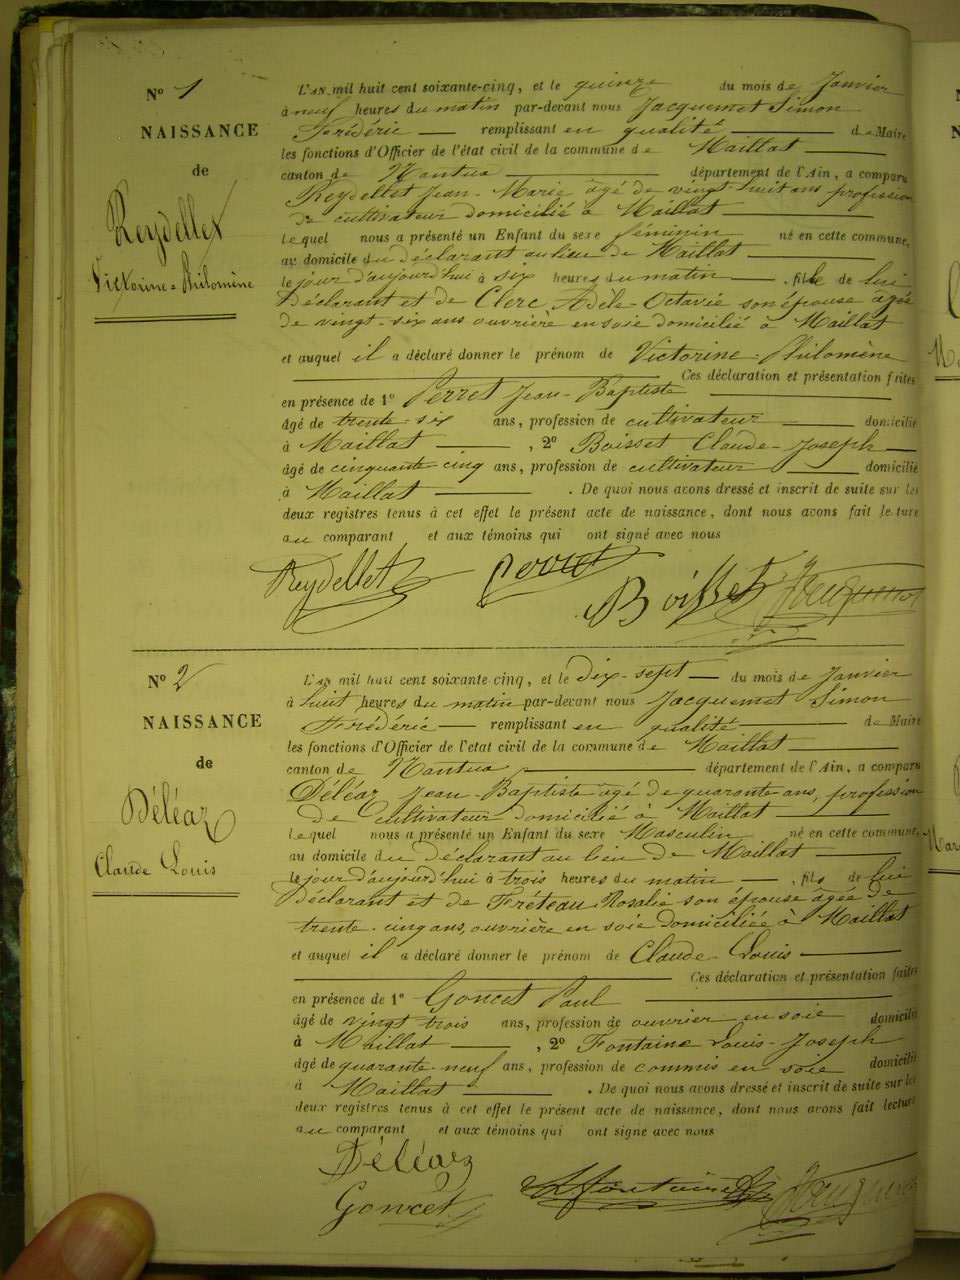 N° 1
NAISSANCE
de
Reydellet
Victorine-Philomène
L'AN mil huit cent soixante-cinq, et le quinze du mois de Janvier
à neuf heures du matin par-devant nous Jacquemet Simon
Frédéric — remplissant en qualité — de Maire
les fonctions d'Officier de l'état civil de la commune de Maillat —
canton de Nantua — département de l'Ain, a comparu
Reydellet Jean-Marie âgé de vingt-huit ans profession
de cultivateur domicilié à Maillat —
lequel nous a présenté un Enfant du sexe féminin né en cette commune,
au domicile du déclarant au lieu de Maillat —
le jour d'aujourd'hui à six heures du matin — , fille de lui
déclarant et de Clerc, Adèle-Octavie son épouse âgée
de vingt-six ans ouvrière en soie domicilié à Maillat
et auquel il a déclaré donner le prénom de Victorine-Philomène
— Ces déclaration et présentation faites
en présence de 1° Perret Jean-Baptiste —
âgé de trente-six ans, profession de cultivateur — domicilié
à Maillat — , 2° Boisset Claude-Joseph —
âgé de cinquante-cinq ans, profession de cultivateur — domicilié
à Maillat — . De quoi nous avons dressé et inscrit de suite sur les
deux registres tenus à cet effet le présent acte de naissance, dont nous avons fait lecture
au comparant et aux témoins qui ont signé avec nous
Reydellet Perret Boisset Jacquemet
N° 2
NAISSANCE
de
Déléaz
Claude Louis
L'AN mil huit cent soixante-cinq, et le dix-sept — du mois de Janvier
à huit heures du matin par-devant nous Jacquemet Simon
Frédéric — remplissant en qualité — de Maire
les fonctions d'Officier de l'état civil de la commune de Maillat —
canton de Nantua — département de l'Ain, a comparu
Déléaz Jean-Baptiste âgé de quarante ans, profession
de cultivateur domicilié à Maillat —
lequel nous a présenté un Enfant du sexe Masculin né en cette commune,
au domicile du déclarant au lieu de Maillat —
le jour d'aujourd'hui à trois heures du matin — , fils de lui
déclarant et de Fréteau Rosalie son épouse âgée de
trente-cinq ans, ouvrière en soie domiciliée à Maillat
et auquel il a déclaré donner le prénom de Claude-Louis —
— Ces déclaration et présentation faites
en présence de 1° Goncet Paul —
âgé de vingt trois ans, profession de ouvrier en soie domicilié
à Maillat — , 2° Fontaine Louis-Joseph
âgé de quarante-neuf ans, profession de commis en soie domicilié
à Maillat — . De quoi nous avons dressé et inscrit de suite sur les
deux registres tenus à cet effet le présent acte de naissance, dont nous avons fait lecture
au comparant et aux témoins qui ont signé avec nous
Déléaz
Goncet Lfontaine Jacquemet